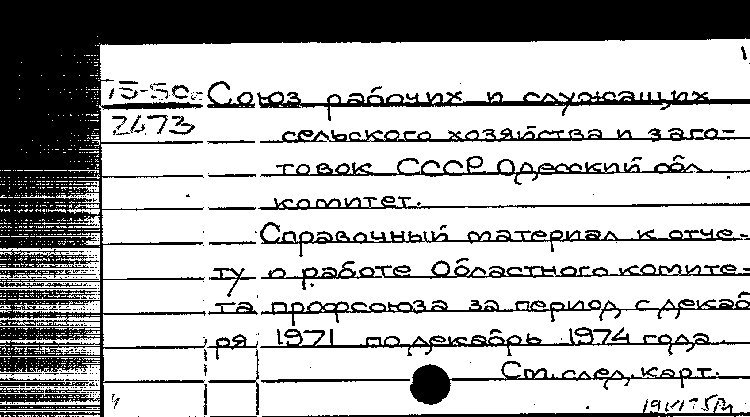 15-50 Союз рабочих и служащих
2473 сельского хозяйства и заго-
товок СССР. Одесский обл.
комитет.
Справочный материал к отче-
ту о работе Областного комите-
та профсоюза за период с декаб
ря 1971 по декабрь 1974 года.
См. след. карт.